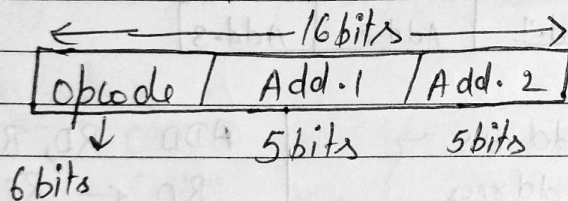 16 bits
Opcode Add. 1 Add. 2
5 bits 5 bits
6 bits